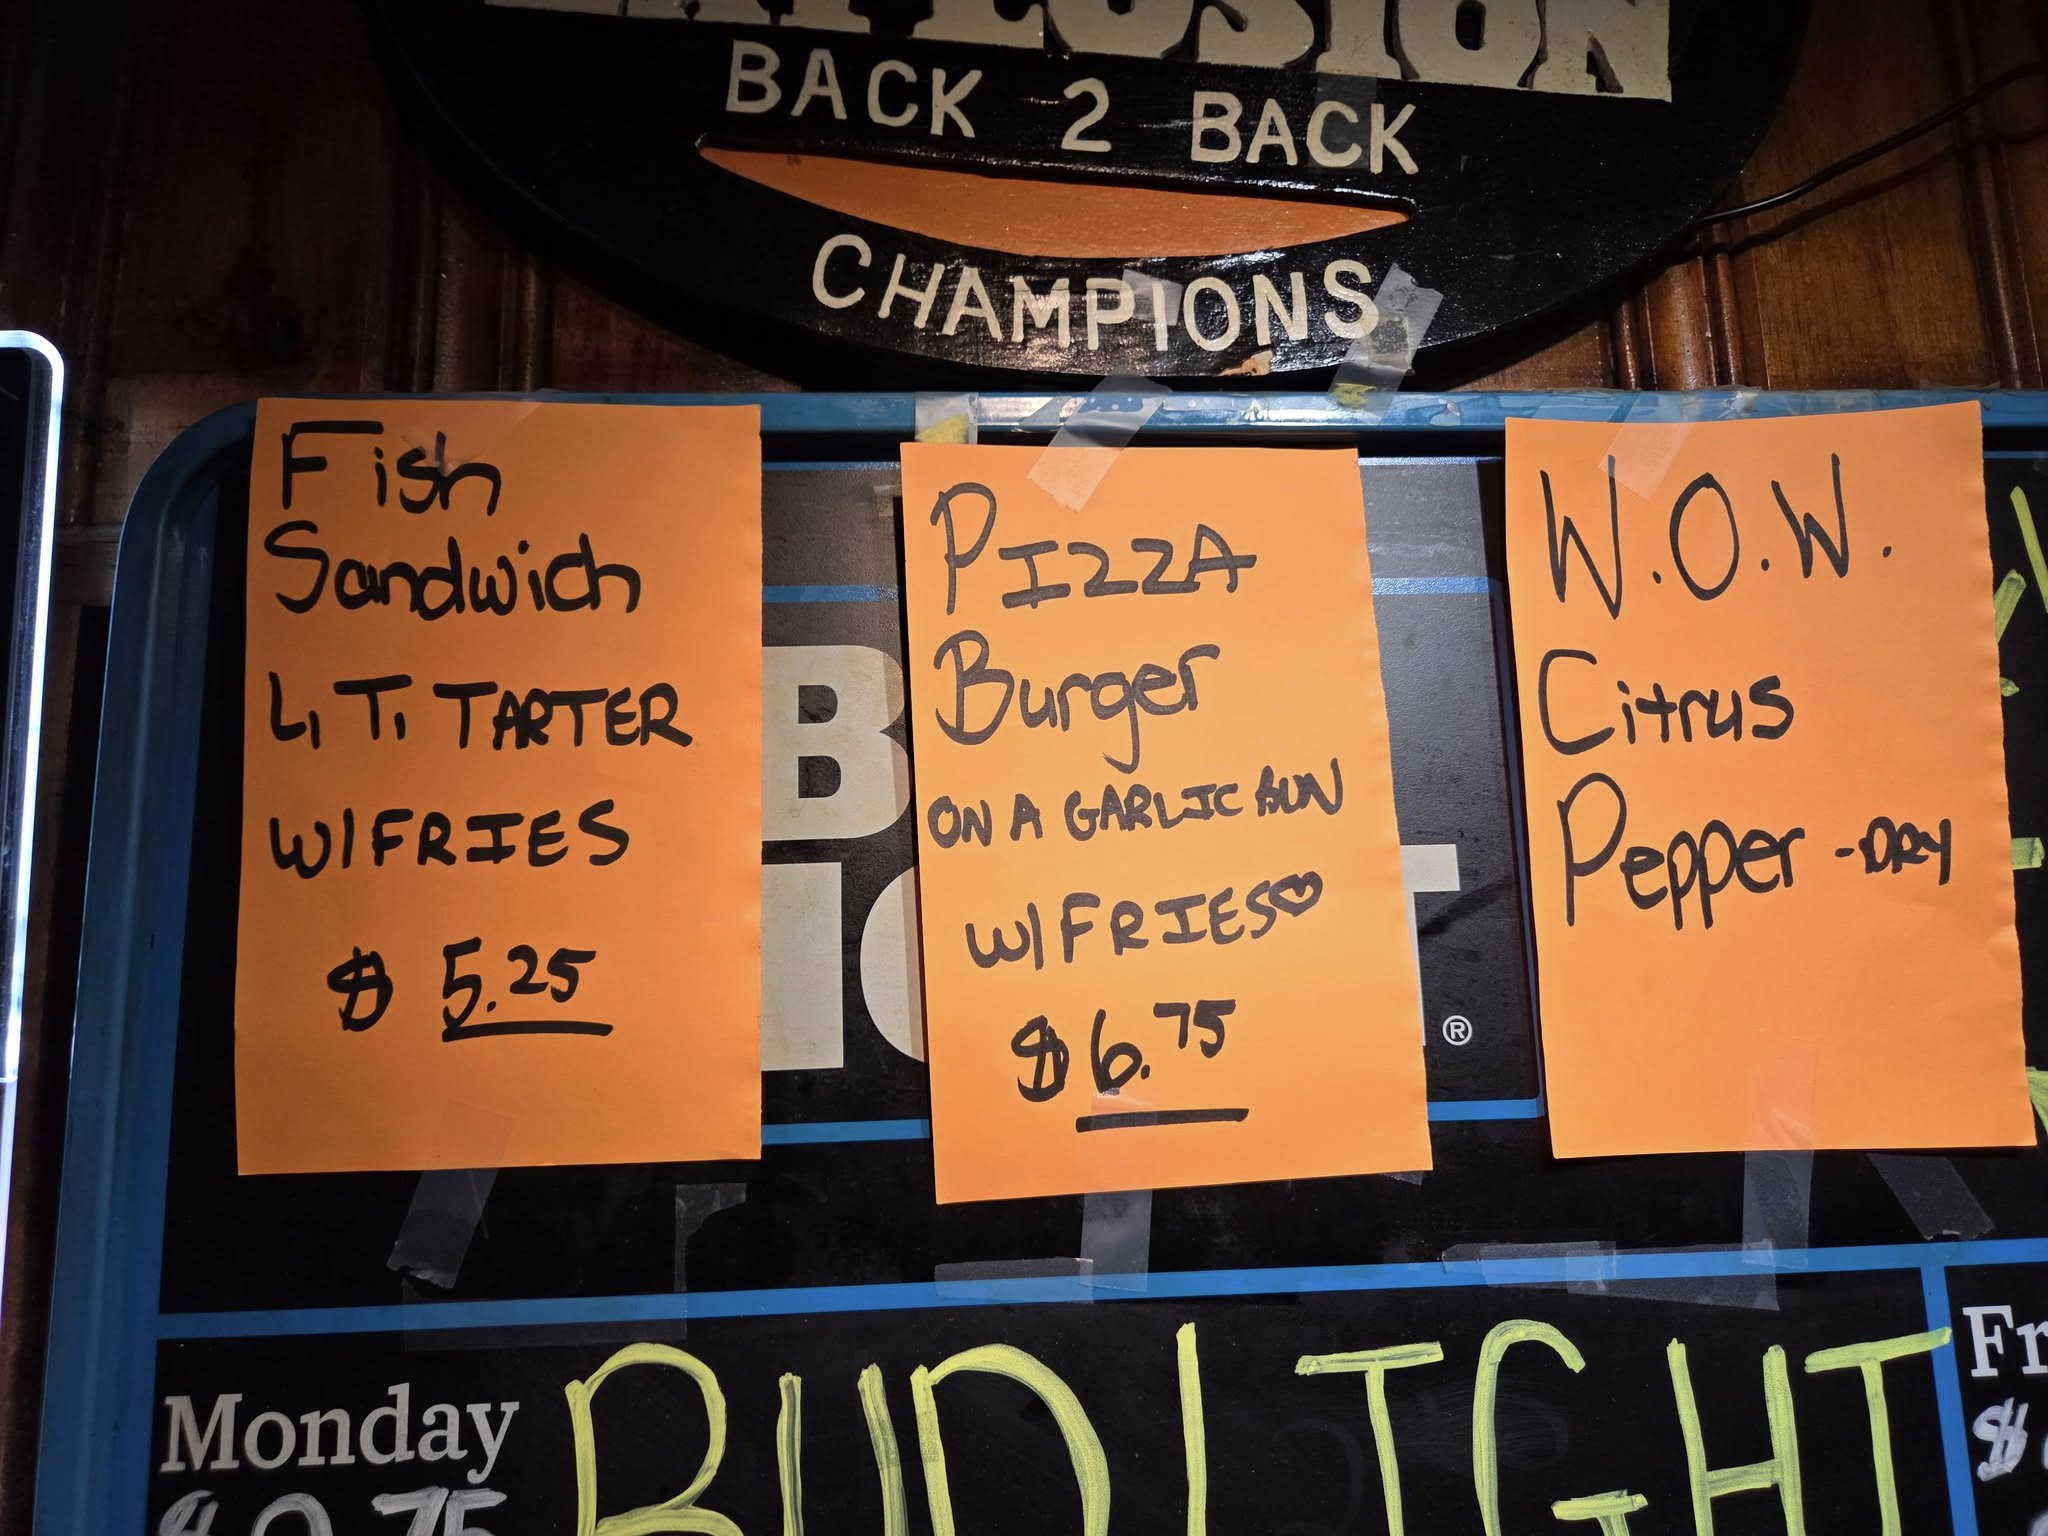 BACK 2 BACK
CHAMPIONS
Fish
Sandwich
L, T, TARTER
W/FRIES
$ 5.25
PIZZA
Burger
ON A GARLIC BUN
W/FRIES♡
$6.75
W.O.W.
Citrus
Pepper -DRY
®
Monday
BUD LIGHT